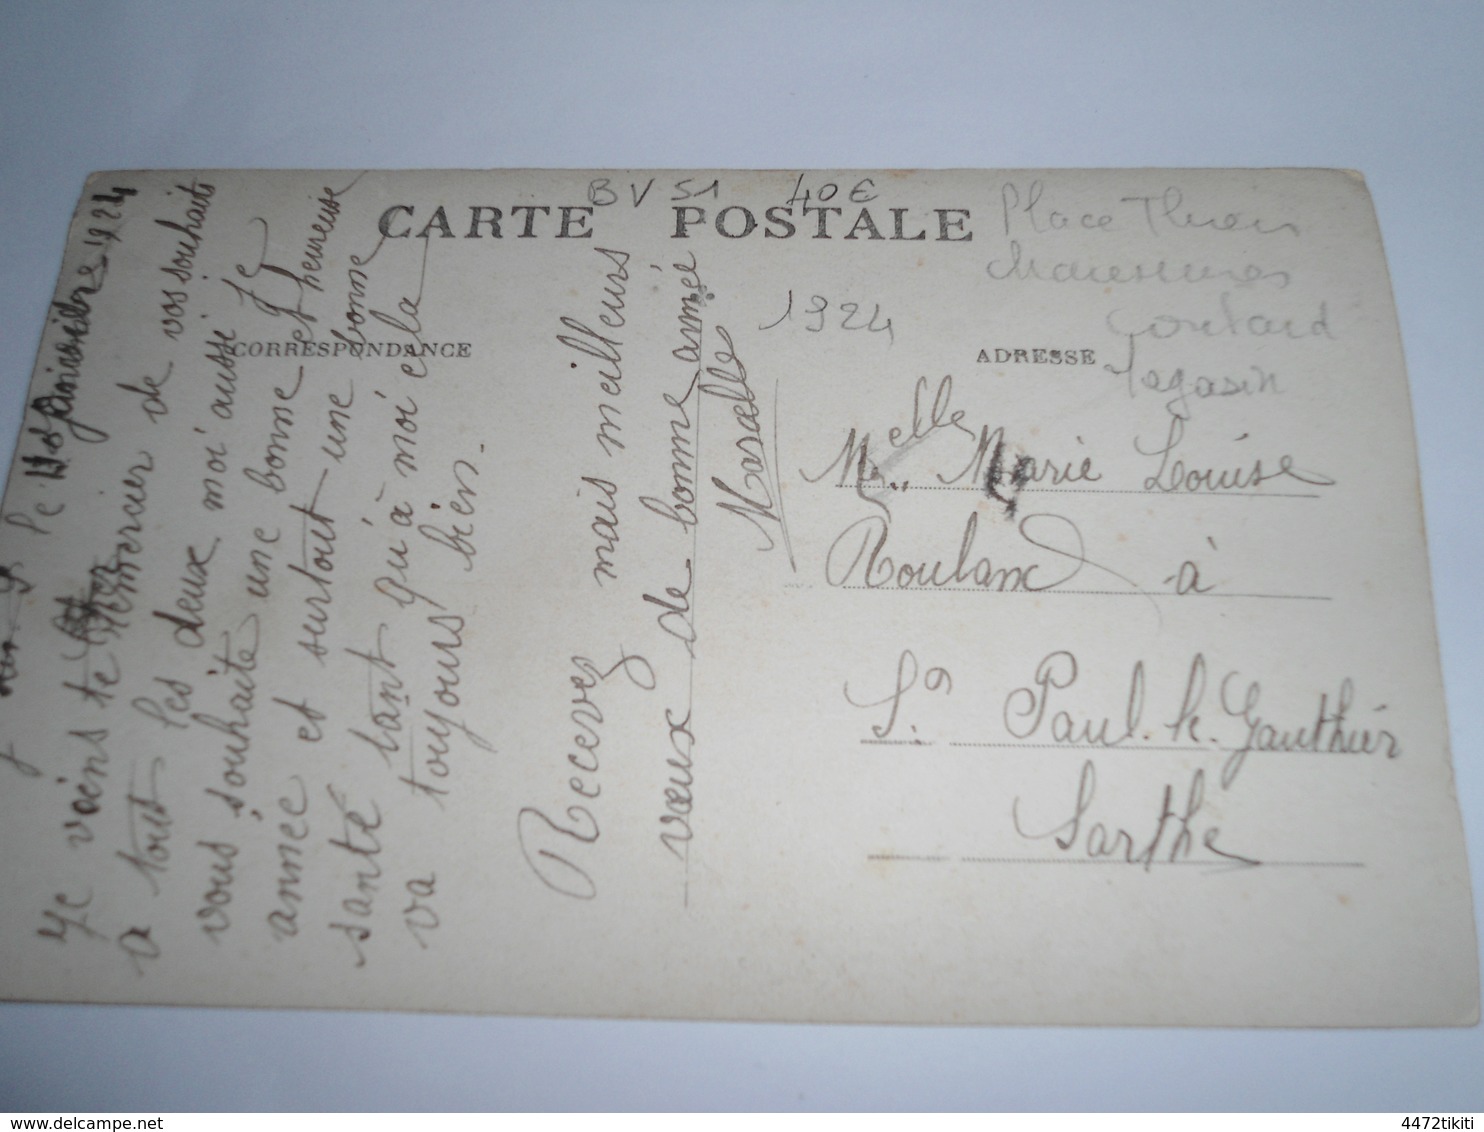 BV 51 40€
CARTE POSTALE
Place Thiers
1924
Coutard
Magasin
CORRESPONDANCE
ADRESSE
le 1924
Je viens te remercier de vos souhaits
a tout les deux moi aussi Je
vous souhaite une bonne et heureuse
année et surtout une bonne
santé tant qu'à moi cela
va toujours bien.
Recevez mais meilleurs
vœux de bonne année
Marcelle
Melle Marie Louise
Rouland à
St Paul. le. Gauthier
Sarthe
4472tikiti